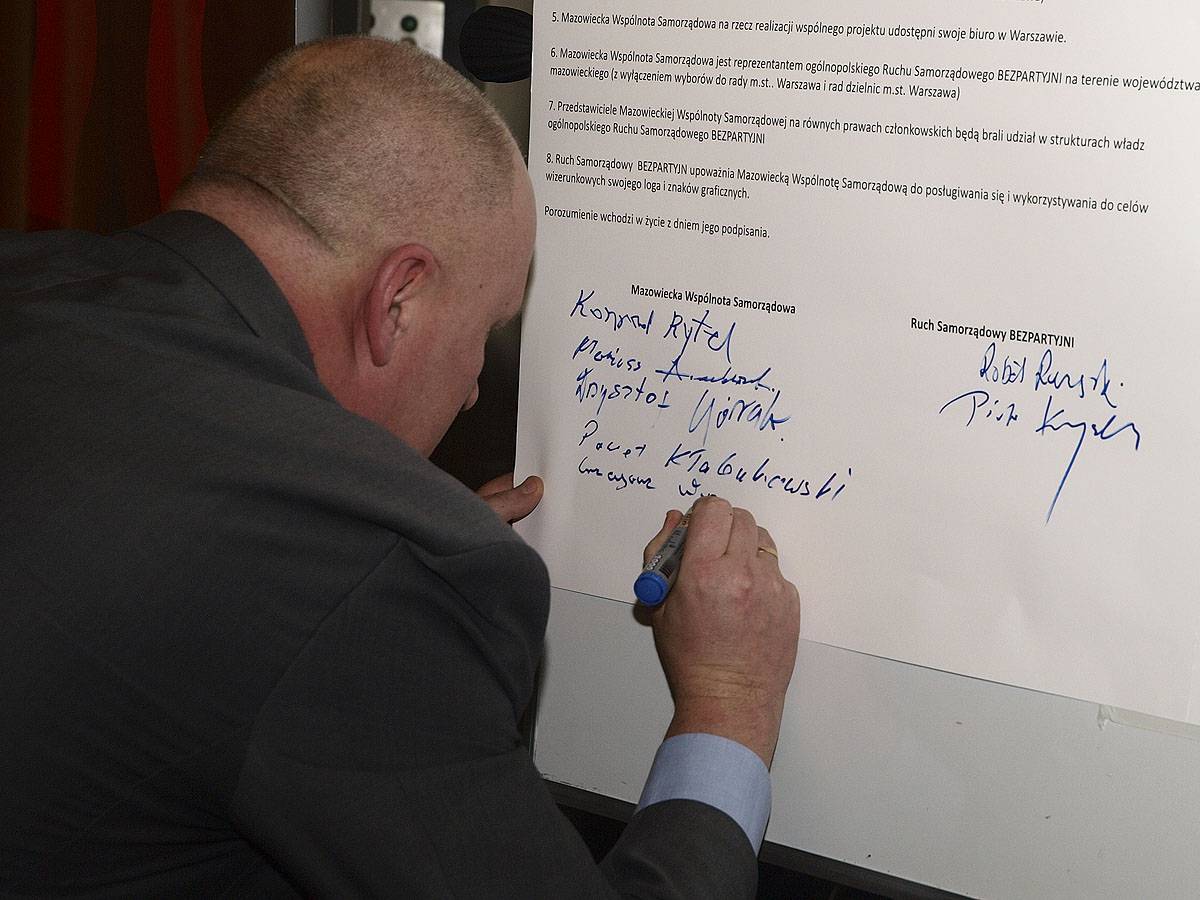 5. Mazowiecka Wspólnota Samorządowa na rzecz realizacji wspólnego projektu udostępni swoje biuro w Warszawie.
6. Mazowiecka Wspólnota Samorządowa jest reprezentantem ogólnopolskiego Ruchu Samorządowego BEZPARTYJNI na terenie województwa
mazowieckiego (z wyłączeniem wyborów do rady m.st.. Warszawa i rad dzielnic m.st. Warszawa)
7. Przedstawiciele Mazowieckiej Wspólnoty Samorządowej na równych prawach członkowskich będą brali udział w strukturach władz
ogólnopolskiego Ruchu Samorządowego BEZPARTYJNI
8. Ruch Samorządowy BEZPARTYJN upoważnia Mazowiecką Wspólnotę Samorządową do posługiwania się i wykorzystywania do celów
wizerunkowych swojego loga i znaków graficznych.
Porozumienie wchodzi w życie z dniem jego podpisania.
Mazowiecka Wspólnota Samorządowa
Konrad Rytel
Mariusz
Krzysztof
Paweł
Ruch Samorządowy BEZPARTYJNI
Piotr